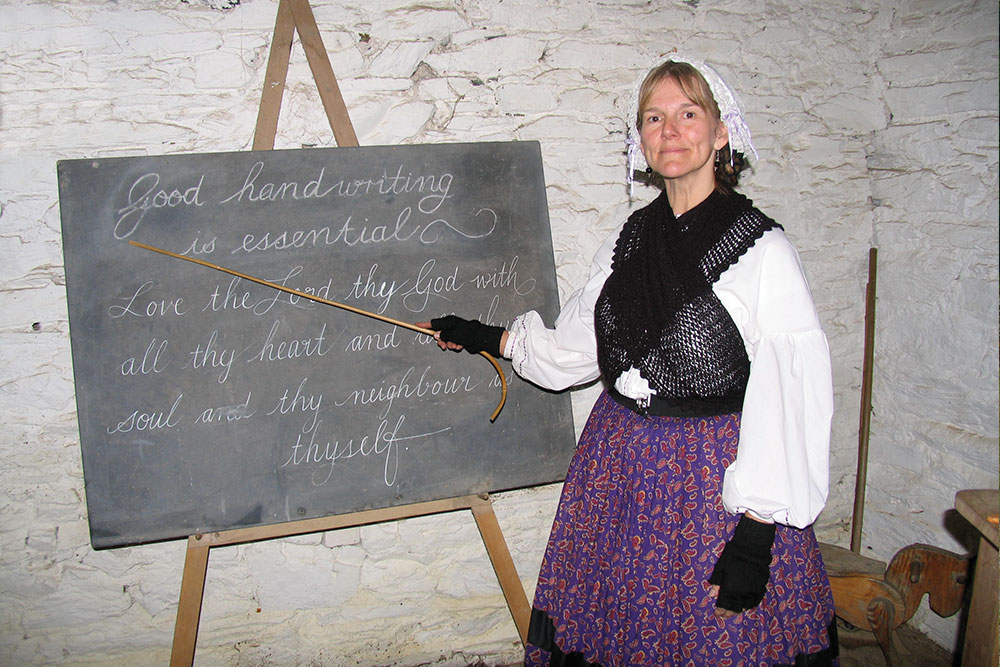 Good handwriting
is essential
Love the Lord thy God with
all thy heart and
soul and thy neighbour as
thyself.